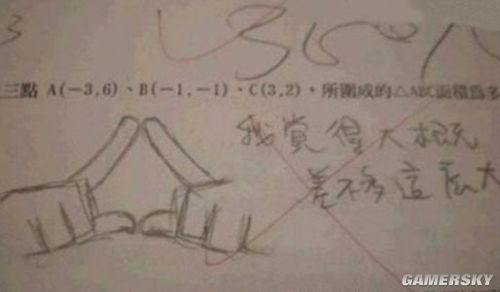 3
三點 A(-3,6)、B(-1,-1)、C(3,2),所圍成的△ABC面積為多
我覺得大概
差不多這麼大
GAMERSKY